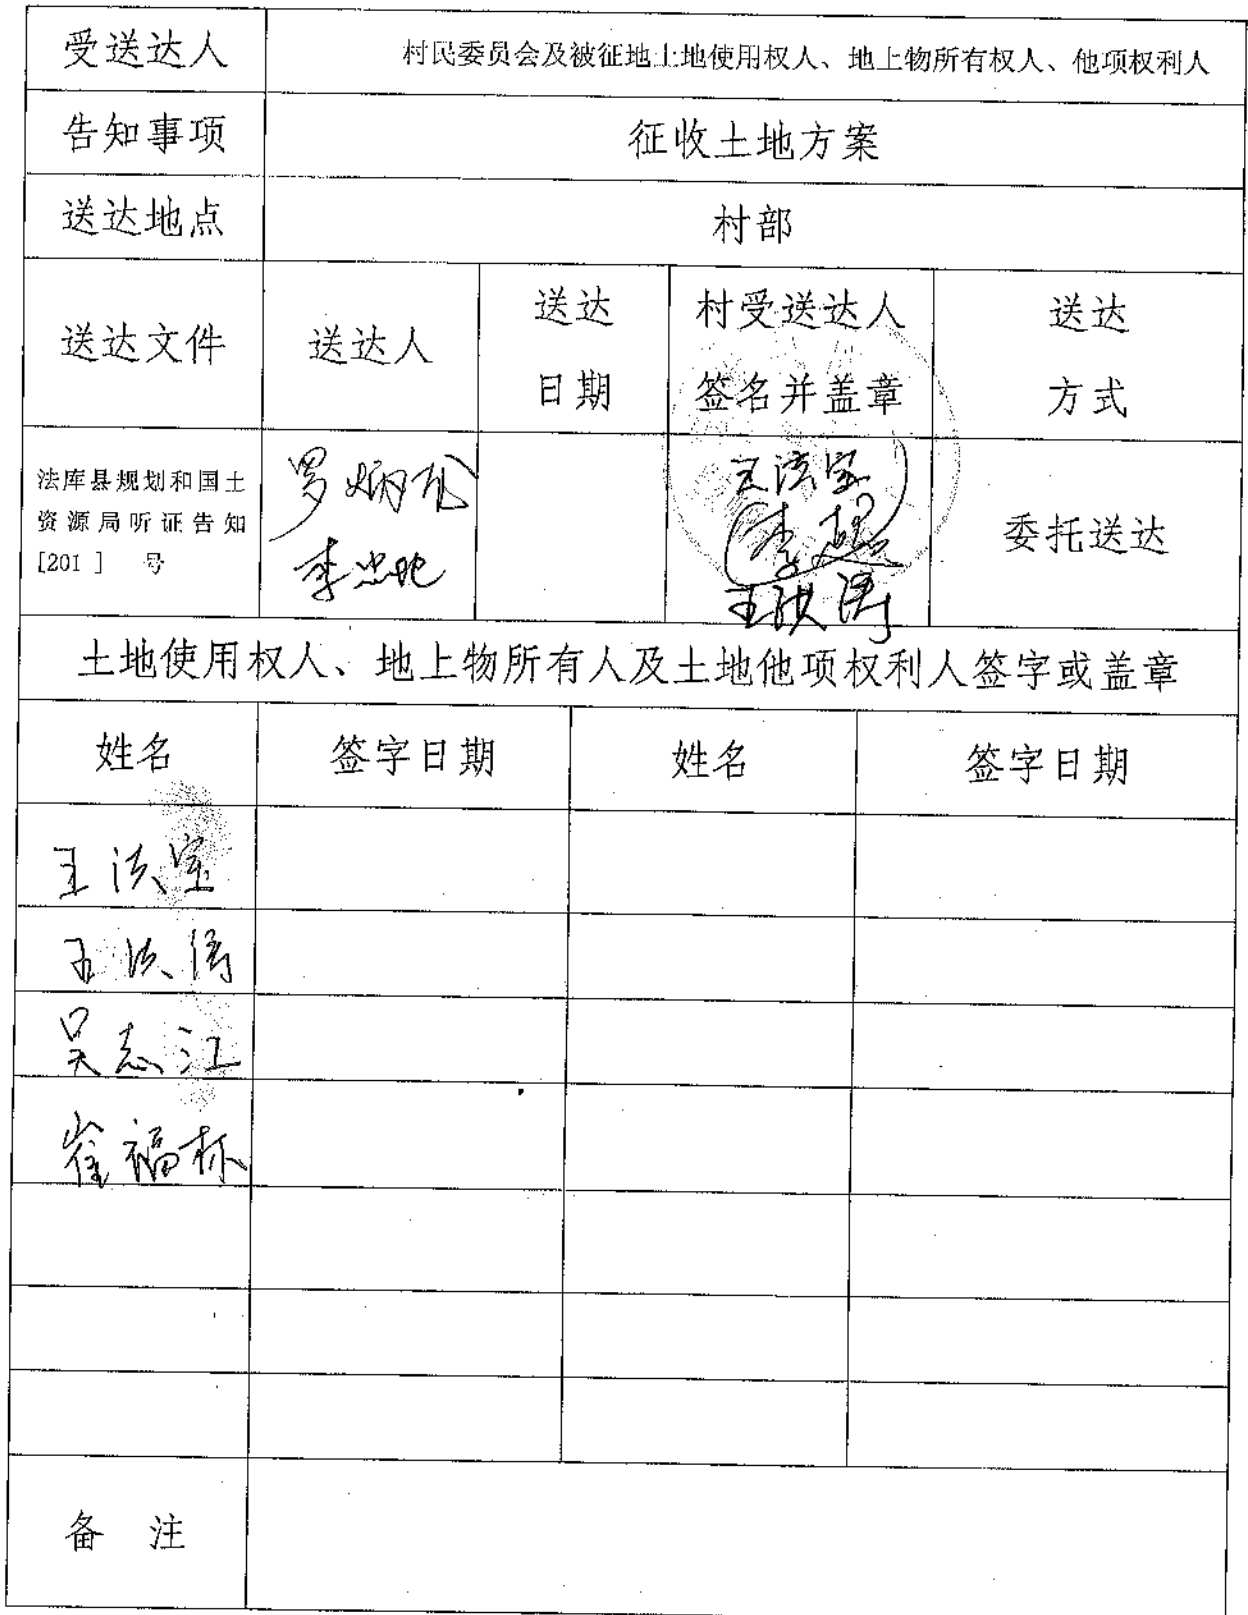 受送达人
村民委员会及被征地土地使用权人、地上物所有权人、他项权利人
告知事项
征收土地方案
送达地点
村部
送达文件
送达人
送达
日期
村受送达人
签名并盖章
送达
方式
法库县规划和国土
资源局听证告知
[201 ] 号
罗炳
李忠
王洪宝
李
王洪涛
委托送达
土地使用权人、地上物所有人及土地他项权利人签字或盖章
姓名
签字日期
姓名
签字日期
王洪宝
王洪涛
吴志江
崔福林
备 注